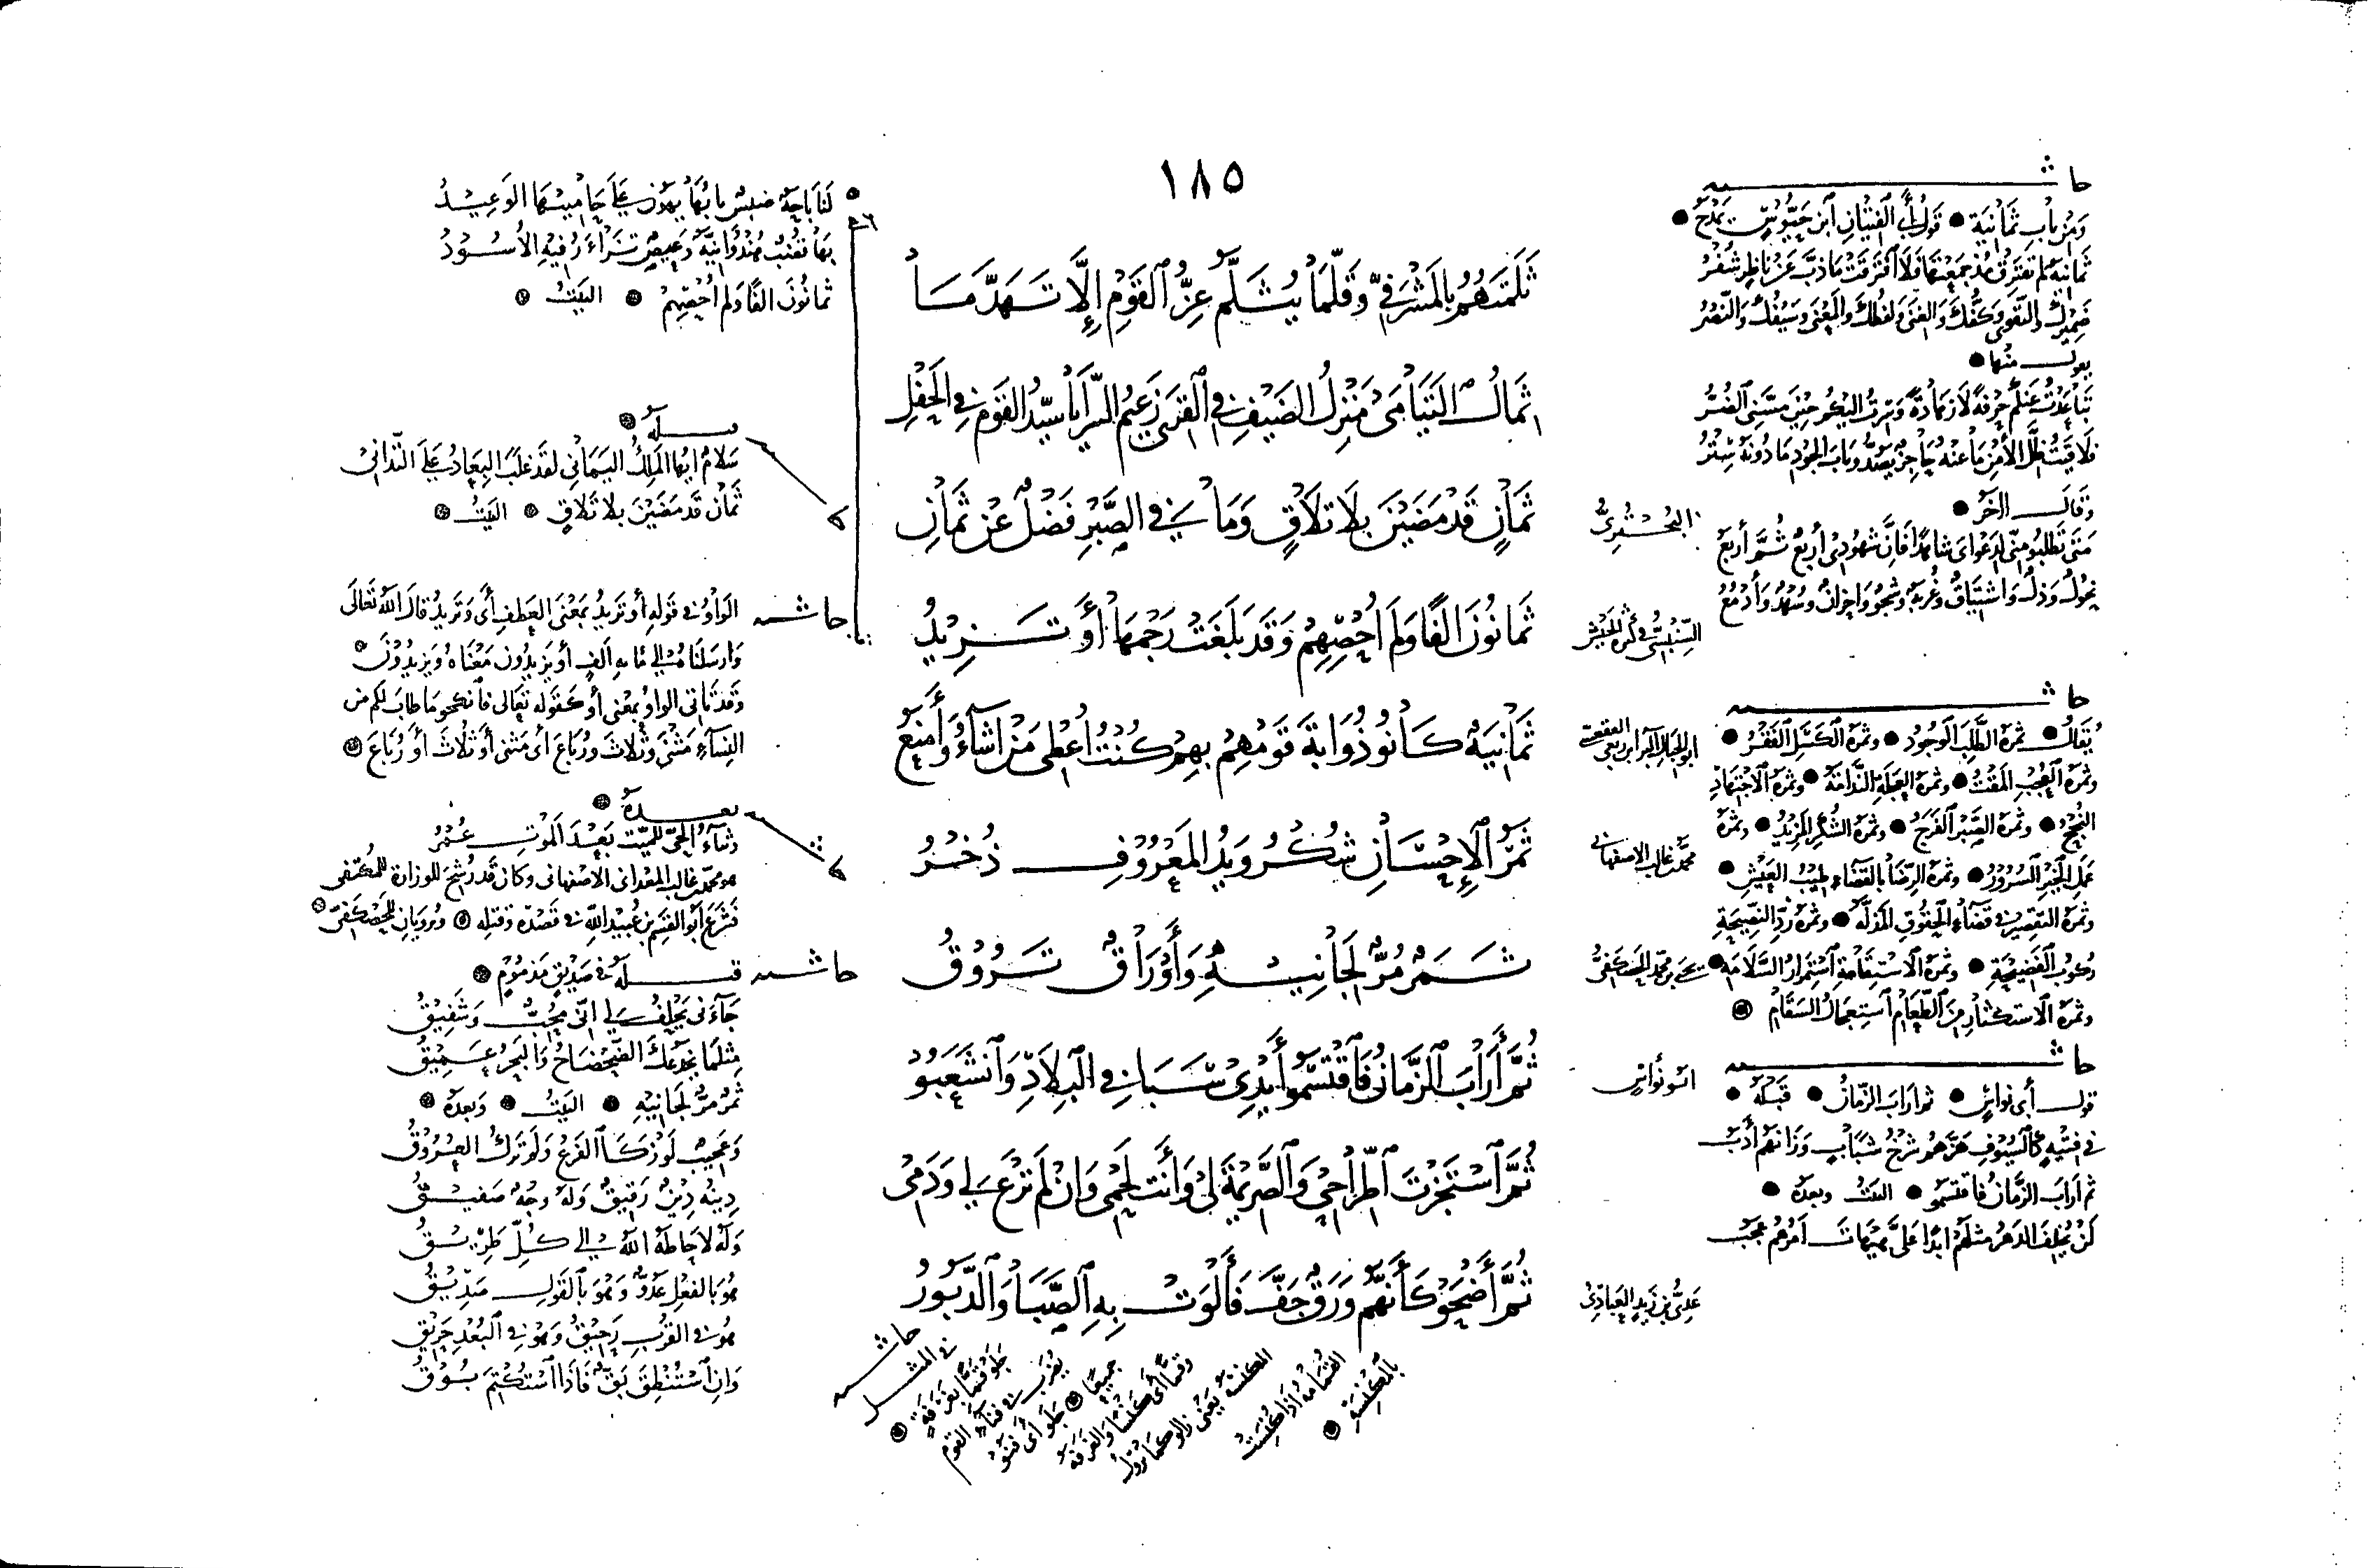 ١٨٥
ثَلَمْتَهُمُ بالمَشْرَفِيِّ وَقَلَّمَا يُثَلَّمُ عِزُّ القَوْمِ إِلَّا تَهَدَّمَا
ثِمَالُ اليَتَامَى مَنْزِلُ الضَيْفِ فِي القِرَى زَعِيمُ البَرَايَا سَيِّدُ القَوْمِ فِي الحَفْلِ
ثَمَانٍ قَدْ مَضَيْنَ بِلَا تَلَاقٍ وَمَا فِي الصَّبْرِ فَضْلٌ عَنْ ثَمَانِ
ثَمَانُونَ أَلْفًا وَلَمْ أُحْصِهِمْ وَقَدْ بَلَغَتْ رَجْمَهَا أَوْ تَزِيْدُ
ثَمَانِيَةٌ كَانُوا ذُوَابَةَ قَوْمِهِمْ بِهِمْ كُنْتُ أُعْطِي مَنْ أَشَاءُ وَأَمْنَعُ
ثَمَرُ الإِحْسَانِ شُكْرٌ وَيَدُ المَعْرُوفِ ذُخْرُ
ثَمَرٌ مُرٌّ لِجَانِيهِ وَأَوْرَاقٌ تَرُوْقُ
ثُمَّ أَرَابَ الزَّمَانُ فَاقْتَسَمُوا أَيْدِي سَبَا فِي البِلَادِ وَانْشَعَبُوا
ثُمَّ اسْتَجَزْتَ اطِّرَاحِي وَالصَّرِيْمَةَ لِي وَأَنْتَ لَحْمِي وَإِنْ لَمْ تَرْعَ لِي وَدَمِي
ثُمَّ أَضْحَوْا كَأَنَّهُمْ وَرَقٌ جَفَّ فَأَلْوَتْ بِهِ الصَّبَا وَالدَّبُوْرُ
البُحْتُرِيُّ
السِّنْبِسِيُّ فِي كَثْرَةِ الجَيْشِ
محمَّد غالب الاصفهاني
يحيى بن محمّد الحصكفيُّ
ابو نُوَاس
عَدِيُّ بن زَيدٍ العَبَادِيُّ
حاشيه
وَمِنْ بَاب ثَمَانِيَة قَوْلُ أَبِي الفِتْيَانِ ابن حَيُّوسٍ يَمْدَحُ
ثَمَانِيَةٌ لَمْ تَفْتَرِقْ مُذْ جَمَعْتَهَا فَلَا افْتَرَقَتْ مَا ذَبَّ عَنْ نَاظِرٍ شُفْرُ
ضَمِيْرُكَ وَالتَّقْوَى وَكَفُّكَ وَالغِنَى وَلَفْظُكَ وَالمَعْنَى وَسَيْفُكَ وَالنَّصْرُ
يقول منها
تَبَاعَدْتُ عَنْكُمْ حِرْفَةً لَا زَهَادَةً وَسِرْتُ إِلَيْكُمْ حِيْنَ مَسَّنِيَ الضُّرُّ
فَلَاقَيْتُ ظِلَّ الأَمْنِ مَا عَنْهُ حَاجِزٌ يَصُدُّ وَبَابَ الجُودِ مَا دُونَهُ سِتْرُ
وَقَالَ آخَرُ
مَتَى تَطْلُبُوا مِنِّي لِدَعْوَايَ شَاهِدًا فَإِنَّ شُهُودِي أَرْبَعٌ ثُمَّ أَرْبَعُ
نُحُوْلٌ وَذُلٌّ وَاشْتِيَاقٌ وَغُرْبَةٌ وَشَجْوٌ وَأَحْزَانٌ وَسُهْدٌ وَأَدْمُعُ
حاشيه
يُقَالُ ثمرَةُ الطَّلَبِ الوُجُود وثمرَةُ الكَسَلِ الفَقْرُ
وثمرَةُ العُجْبِ المَقْتُ وثمرَةُ العَجَلَةِ النَّدَامَة وثمرَةُ الاجْتِهَادِ
النُّجْحُ وثمرَةُ الصَّبْرِ الفَرَجُ وثمرَةُ الشُّكْرِ المَزِيْدُ وثمرَة
عَمَلِ الخَيْرِ السُّرُوْرُ وثمرَةُ الرِّضَا بِالقَضَاءِ طِيْبُ العَيْشِ
وثمرَةُ التَقْصِيْرِ في قَضَاءِ الحُقُوقِ المَذَلَّةُ وثمرَةُ رَدِّ النَّصِيْحَةِ
رُكُوْبُ الفَضِيْحَةِ وثمرَةُ الاسْتِقَامَةِ اسْتِمْرَارُ السَّلَامَةِ
وثمرَةُ الاستكثارِ مِنَ الطَّعَامِ اسْتِعْجَالُ السَّقَامِ
حاشيه
قول أبي نواسٍ ثم اَرَابَ الزّمَانُ قَبْلَهُ
في فِتْيَةٍ كَالسُّيُوْفِ هَزَّهُمُ شَرْخُ شَبَابٍ وَزَانَهُمْ أَدَبُ
ثم اَرَابَ الزَّمَانُ فاقتسموا البَيْتُ وبعدَهُ
لَنْ يُخْلِفَ الدَهْرُ مِثْلَهُمْ أَبَدًا عَلَيَّ هَيْهَاتَ أَمْرُهُمْ عَجَبُ
لَنَا بَاحَةٌ ضَبِسٌ بَابُهَا يَهُوْنُ عَلَى حَامِيَيْهَا الوَعِيْدُ
بِهَا قُضُبٌ هُنْدُوَانِيَّةٌ وَعِيصٌ تَزَاءَرُ فِيْهِ الأُسُوْدُ
ثمانُونَ ألفًا وَلم أُحْصِهِمْ البَيْتُ
قبلَهُ
سَلَامٌ أَيُّهَا المَلِكُ اليَمَانِي لَقَدْ غَلَبَ البِعَادُ عَلَى التَّدَانِي
ثَمَانٍ قَد مَضَيْنَ بِلَا تَلَاقٍ البَيْتُ
حاشيه الوَاوُ في قَولِهِ أو تَزِيدُ بمَعْنَى العَطفِ أَيْ وَتَزِيدُ قَالَ اللهُ تَعَالَى
وَأَرْسَلْنَاهُ إلى مائةِ أَلفٍ أو يَزيدُون مَعْنَاهُ وَيَزِيدُوْنَ
وَقَد تَأتي الواوُ بمعْنى أو كَقَوله تَعَالى فَانكحوا ما طابَ لكم من
النِسَاءِ مَثْنَى وَثُلَاثَ وَرُبَاعَ أي مَثْنَى أو ثُلَاثَ أَوْ رُبَاعَ
بعدَهُ
وَثَنَاءُ الحَيِّ لِلْمَيِّتِ بَعْدَ المَوْتِ عُمْرُ
هو محمّد بن غالب المقدانى الاصْفَهانى وكانَ قَد رُشِّحَ للوزارة للمُكتفى
فَشَرَعَ أبو القَسِم بن عُبيد اللهِ في قَصْدِه وَقتلِه وَيُرويَانِ للحَصْكَفيِّ
حاشيه قولهُ في صَدِيْقٍ مَذْمُومٍ
جَاءَني يَحْلِفُ لِي إنّي مُحِبٌّ وَشَفِيْقُ
مِثْلَمَا يَخْدَعُكَ الضَّحْضَاحُ وَالبَحْرُ عَمِيْقُ
ثَمَرٌ مُرٌّ لِجَانِيْهِ البَيْتُ وَبعدَهُ
وَعَجِيْبٌ لَوْ زَكَا الفَرْعُ وَلَمْ تَزْكُ العُرُوْقُ
دِيْنُهُ دِيْنٌ رَقِيْقٌ وَلَهُ وَجْهٌ صَفِيْقُ
وَلَهُ لَا حَاطَهُ اللهُ إِلَى كُلٍّ طَرِيْقُ
هُوَ بِالفِعْلِ عَدُوٌّ وَهُوَ بِالقَوْلِ صَدِيْقُ
هُوَ في القُرْبِ رَحِيْقٌ وَهُوَ في البُعْدِ حَرِيْقُ
وَإِنِ اسْتُنْطِقَ بَقٌّ فَإِذَا اسْتُكْتِمَ بُوْقُ
حاشيه
في المثل